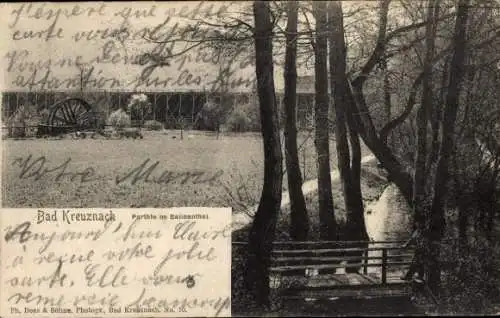 J'espère que cette
carte vous
Vous
attention sur les
Votre Marie
Bad Kreuznach Parthie im Salinenthal.
Aujourd'hui Claire
a reçue votre jolie
carte. Elle vous
remercie beaucoup
Ph. Doss & Söhne, Photogr., Bad Kreuznach. No. 10.